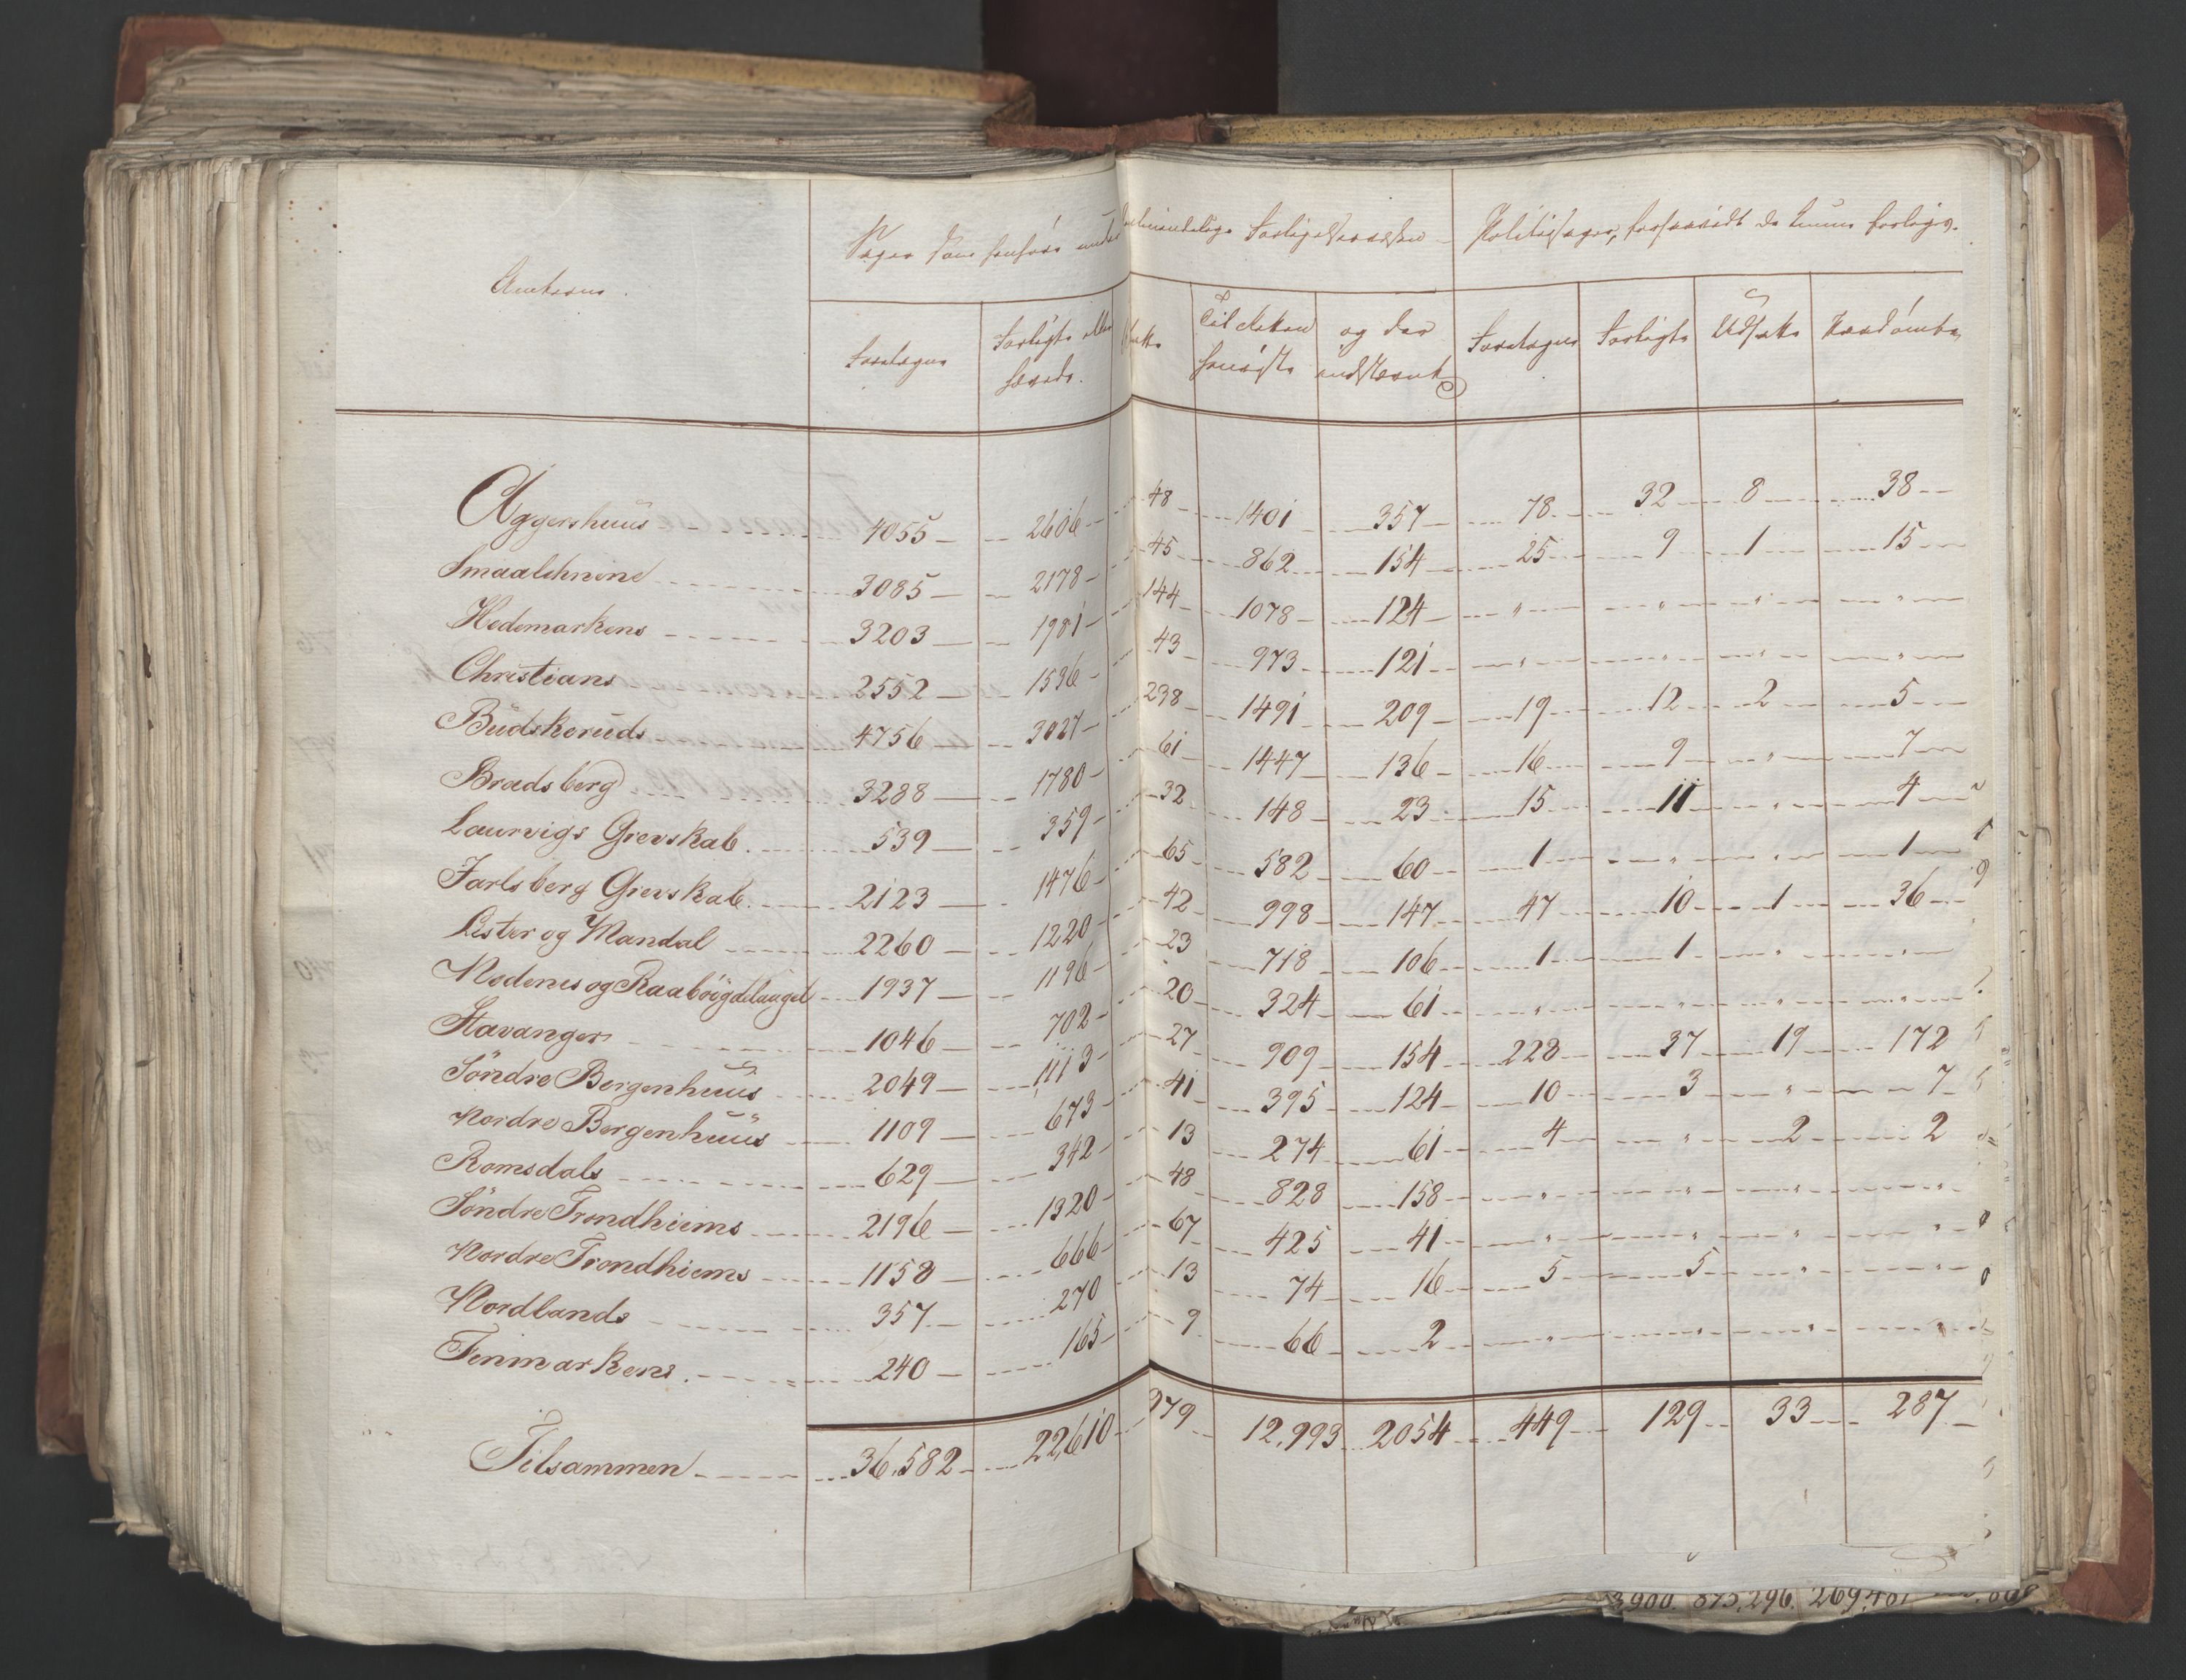 Amterne.
Sager som henhöre under almindelige Forligelsesvæsen
Politisager, forsaavidt de kunne forliges.
Foretagne
Forligte eller hævede.
Udsatte
Til Retten henviste
og der indstevnt
Foretagne
Forligte
Udsatte
Aggershuus 4055 2606 48 1401 357 78 32 8 38
Smaalehnene 3085 2178 45 862 154 25 9 1 15
Hedemarkens 3203 1981 144 1078 124 " " " "
Christians 2552 1536 43 973 121 " " " "
Budskeruds 4756 3027 238 1491 209 19 12 2 5
Bradsberg 3288 1780 61 1447 136 16 9 " 7
Laurvigs Grevskab. 539 359 32 148 23 15 11 " 4
Jarlsberg Grevskab. 2123 1476 65 582 60 1 " " 1
Lister og Mandal 2260 1220 42 998 147 47 10 1 36
Nedenes og Raaböigdelauget 1937 1196 23 718 106 1 1 " "
Stavanger 1046 702 20 324 61 " " " "
Söndre Bergenhuus 2049 1113 27 909 154 228 37 19 172
Nordre Bergenhuus 1109 673 41 395 124 10 3 " 7
Romsdals 629 342 13 274 61 4 " 2 2
Söndre Trondhiems 2196 1320 48 828 158 " " " "
Nordre Trondhiems 1158 666 67 425 41 " " " "
Nordlands 357 270 13 74 16 5 5 " "
Finmarkens. 240 165 9 66 2 " " " "
Tilsammen 36,582 22,610 979 12,993 2054 449 129 33 287
3900. 875,296. 269,401